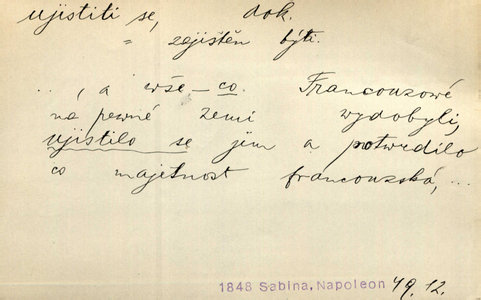 ujistiti se, dok.
" zajištěn býti.
..., a vše – co Francouzové
na pevné zemi vydobyli,
ujistilo se jim a potvrdilo
co majetnost francouzská, ...
1848 Sabina, Napoleon 49.12.